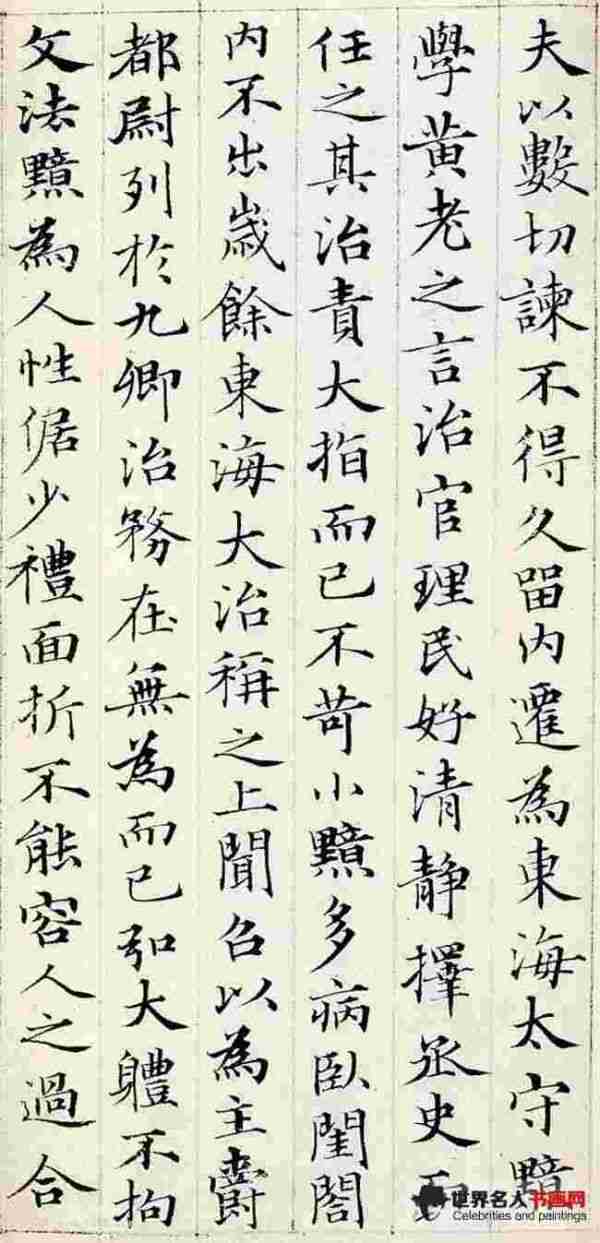 夫以數切諫不得久留内遷為東海太守黯
學黄老之言治官理民好清静擇丞史而
任之其治責大指而已不苛小黯多病臥閨閤
内不出歲餘東海大治稱之上聞召以為主爵
都尉列於九卿治務在無為而已弘大軆不拘
文法黯為人性倨少禮面折不能容人之過合
世界名人书画网
Celebrities and paintings